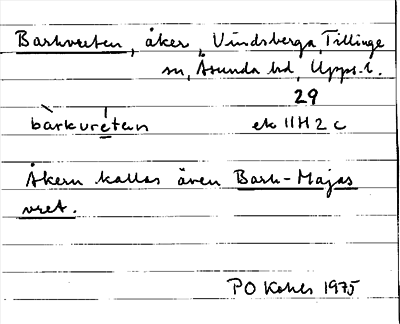 Barkvreten, åker, Vindsberga, Tillinge
sn, Åsunda hd, Upps. l.
29
bàrkvréten ek 11H2c
Åkern kallas även Bark-Majas
vret.
PO 1975